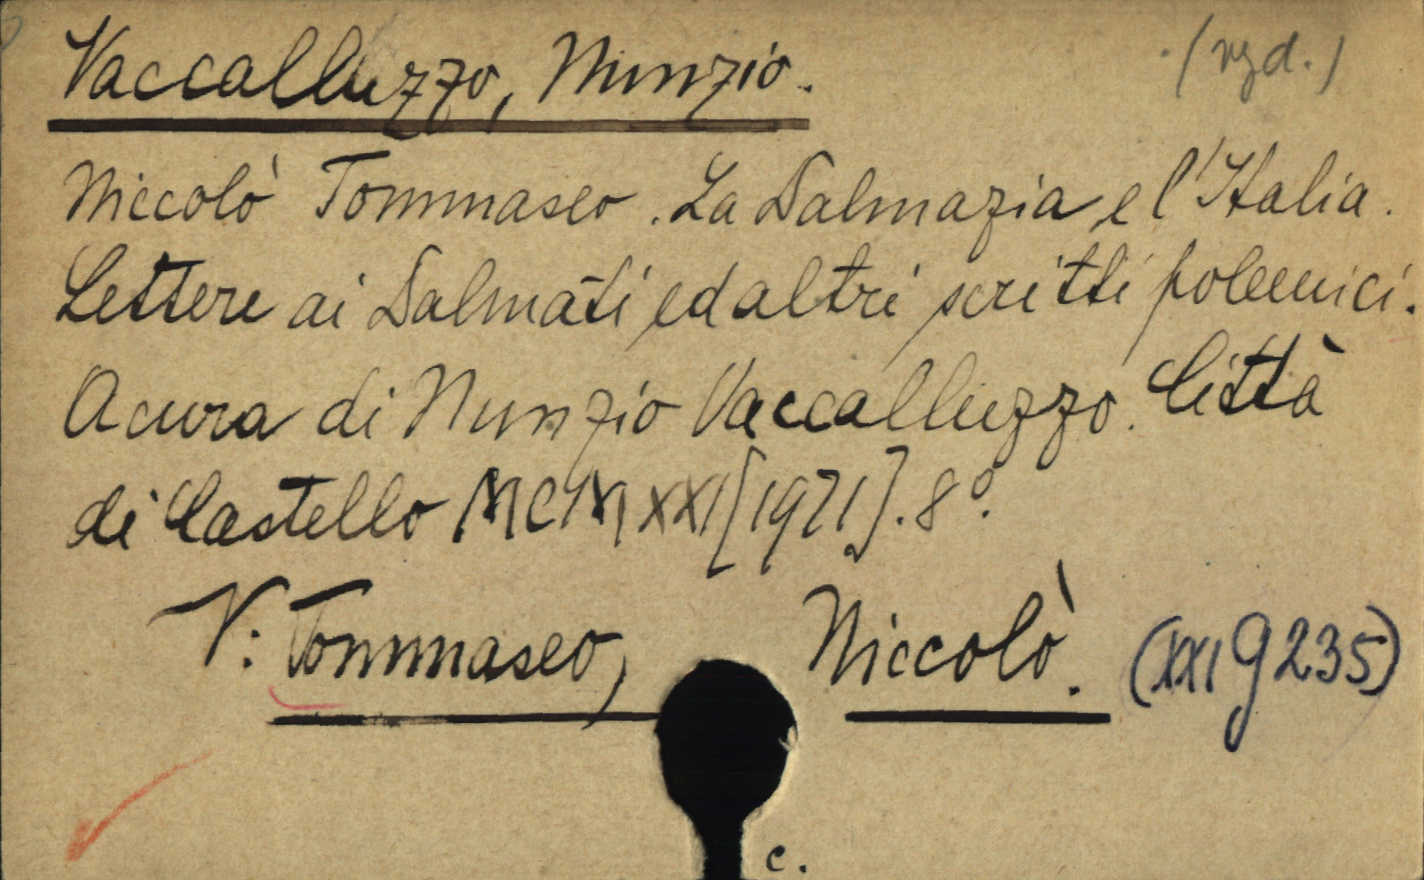 Vaccalluzzo, Nunzio. (izd.)
Niccolò Tommaseo. La Dalmazia e l'Italia.
Lettere ai Dalmati ed altri scritti polemici.
A cura di Nunzio Vaccalluzzo. Città
di Castello MCMXXI [1921]. 8°.
V: Tommaseo, Niccolò. (XXI g 235)
c.